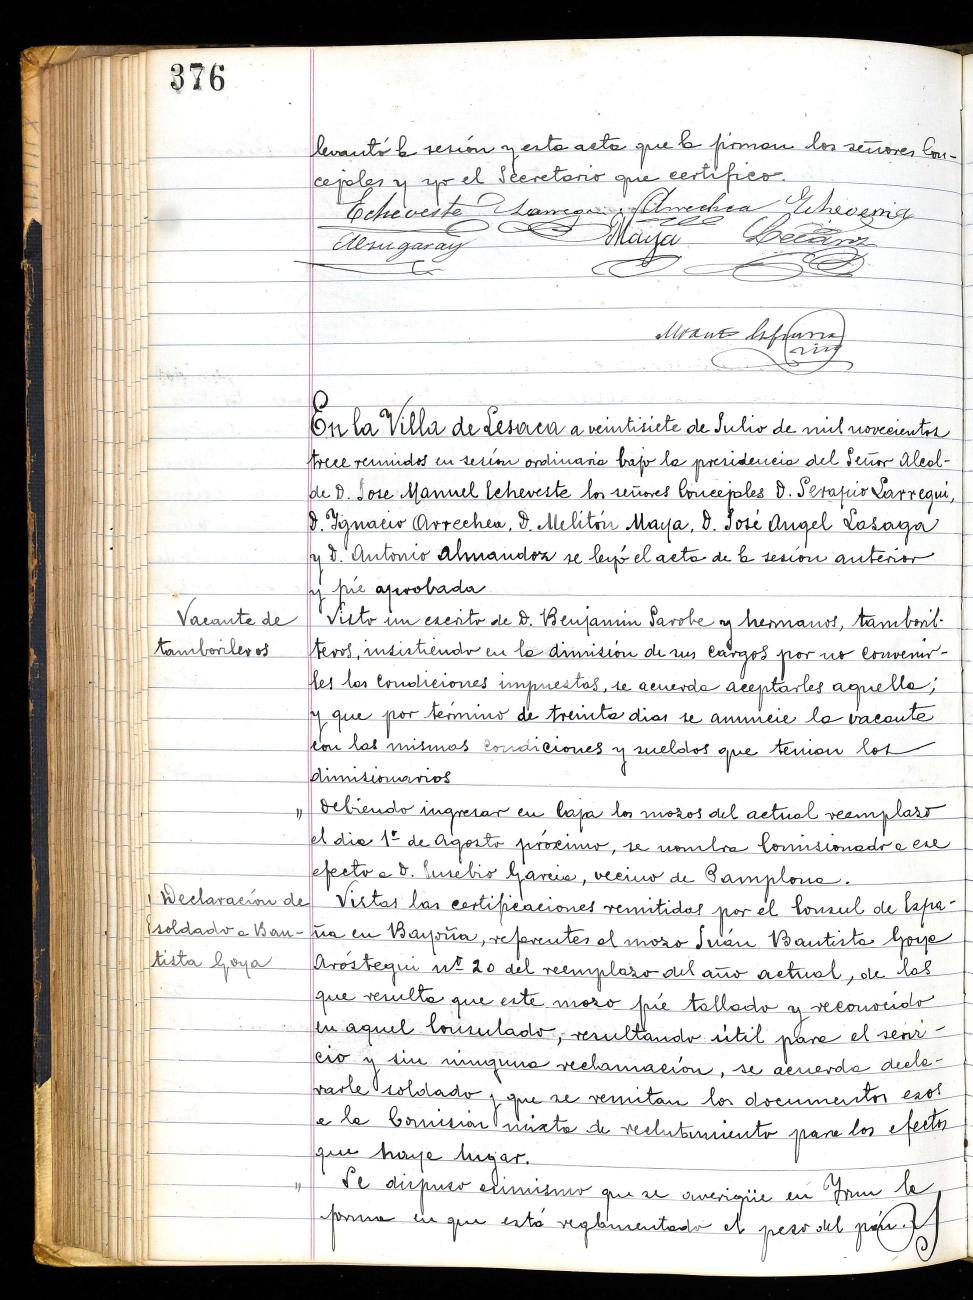 376
levantó la sesión y esta acta que la firman los señores Con-
cejales y yo el Secretario que certifico.
Echeveste Larregui Arrechea Echeverria
Maya
En la Villa de Lesaca a veintisiete de Julio de mil novecientos
trece reunidos en sesión ordinaria bajo la presidencia del Señor Alcal-
de D. Jose Manuel Echeveste los señores Concejales D. Serapio Larregui,
D. Ignacio Arrechea, D. Melitón Maya, D. José Angel Lasaga
y D. Antonio Almandoz se leyó el acta de la sesión anterior
y fué aprobada
Vacante de
tamborileros
Visto un escrito de D. Benjamin Sarobe y hermanos, tambori-
leros, insistiendo en la dimisión de sus cargos por no convenir-
les las condiciones impuestas, se acuerda aceptarles aquella;
y que por término de treinta dias se anuncie la vacante
con las mismas condiciones y sueldos que tenian los
dimisionarios
" Debiendo ingresar en Caja los mozos del actual reemplazo
el dia 1º de Agosto próximo, se nombra Comisionado a ese
efecto a D. Eusebio Garcia, vecino de Pamplona.
Declaración de
soldado a Bau-
tista Goya
Vistas las certificaciones remitidas por el Consul de Espa-
ña en Bayoña, referentes al mozo Juán Bautista Goya
Aróstegui nº 20 del reemplazo del año actual, de las
que resulta que este mozo fué tallado y reconocido
en aquel Consulado, resultando útil para el servi-
cio y sin ninguna reclamación, se acuerda decla-
rarle soldado y que se remitan los documentos esos
a la Comisión mixta de reclutamiento para los efectos
que haya lugar.
" Se dispuso asimismo que se averigüe en Yrun la
forma en que está reglamentado el peso del pán.